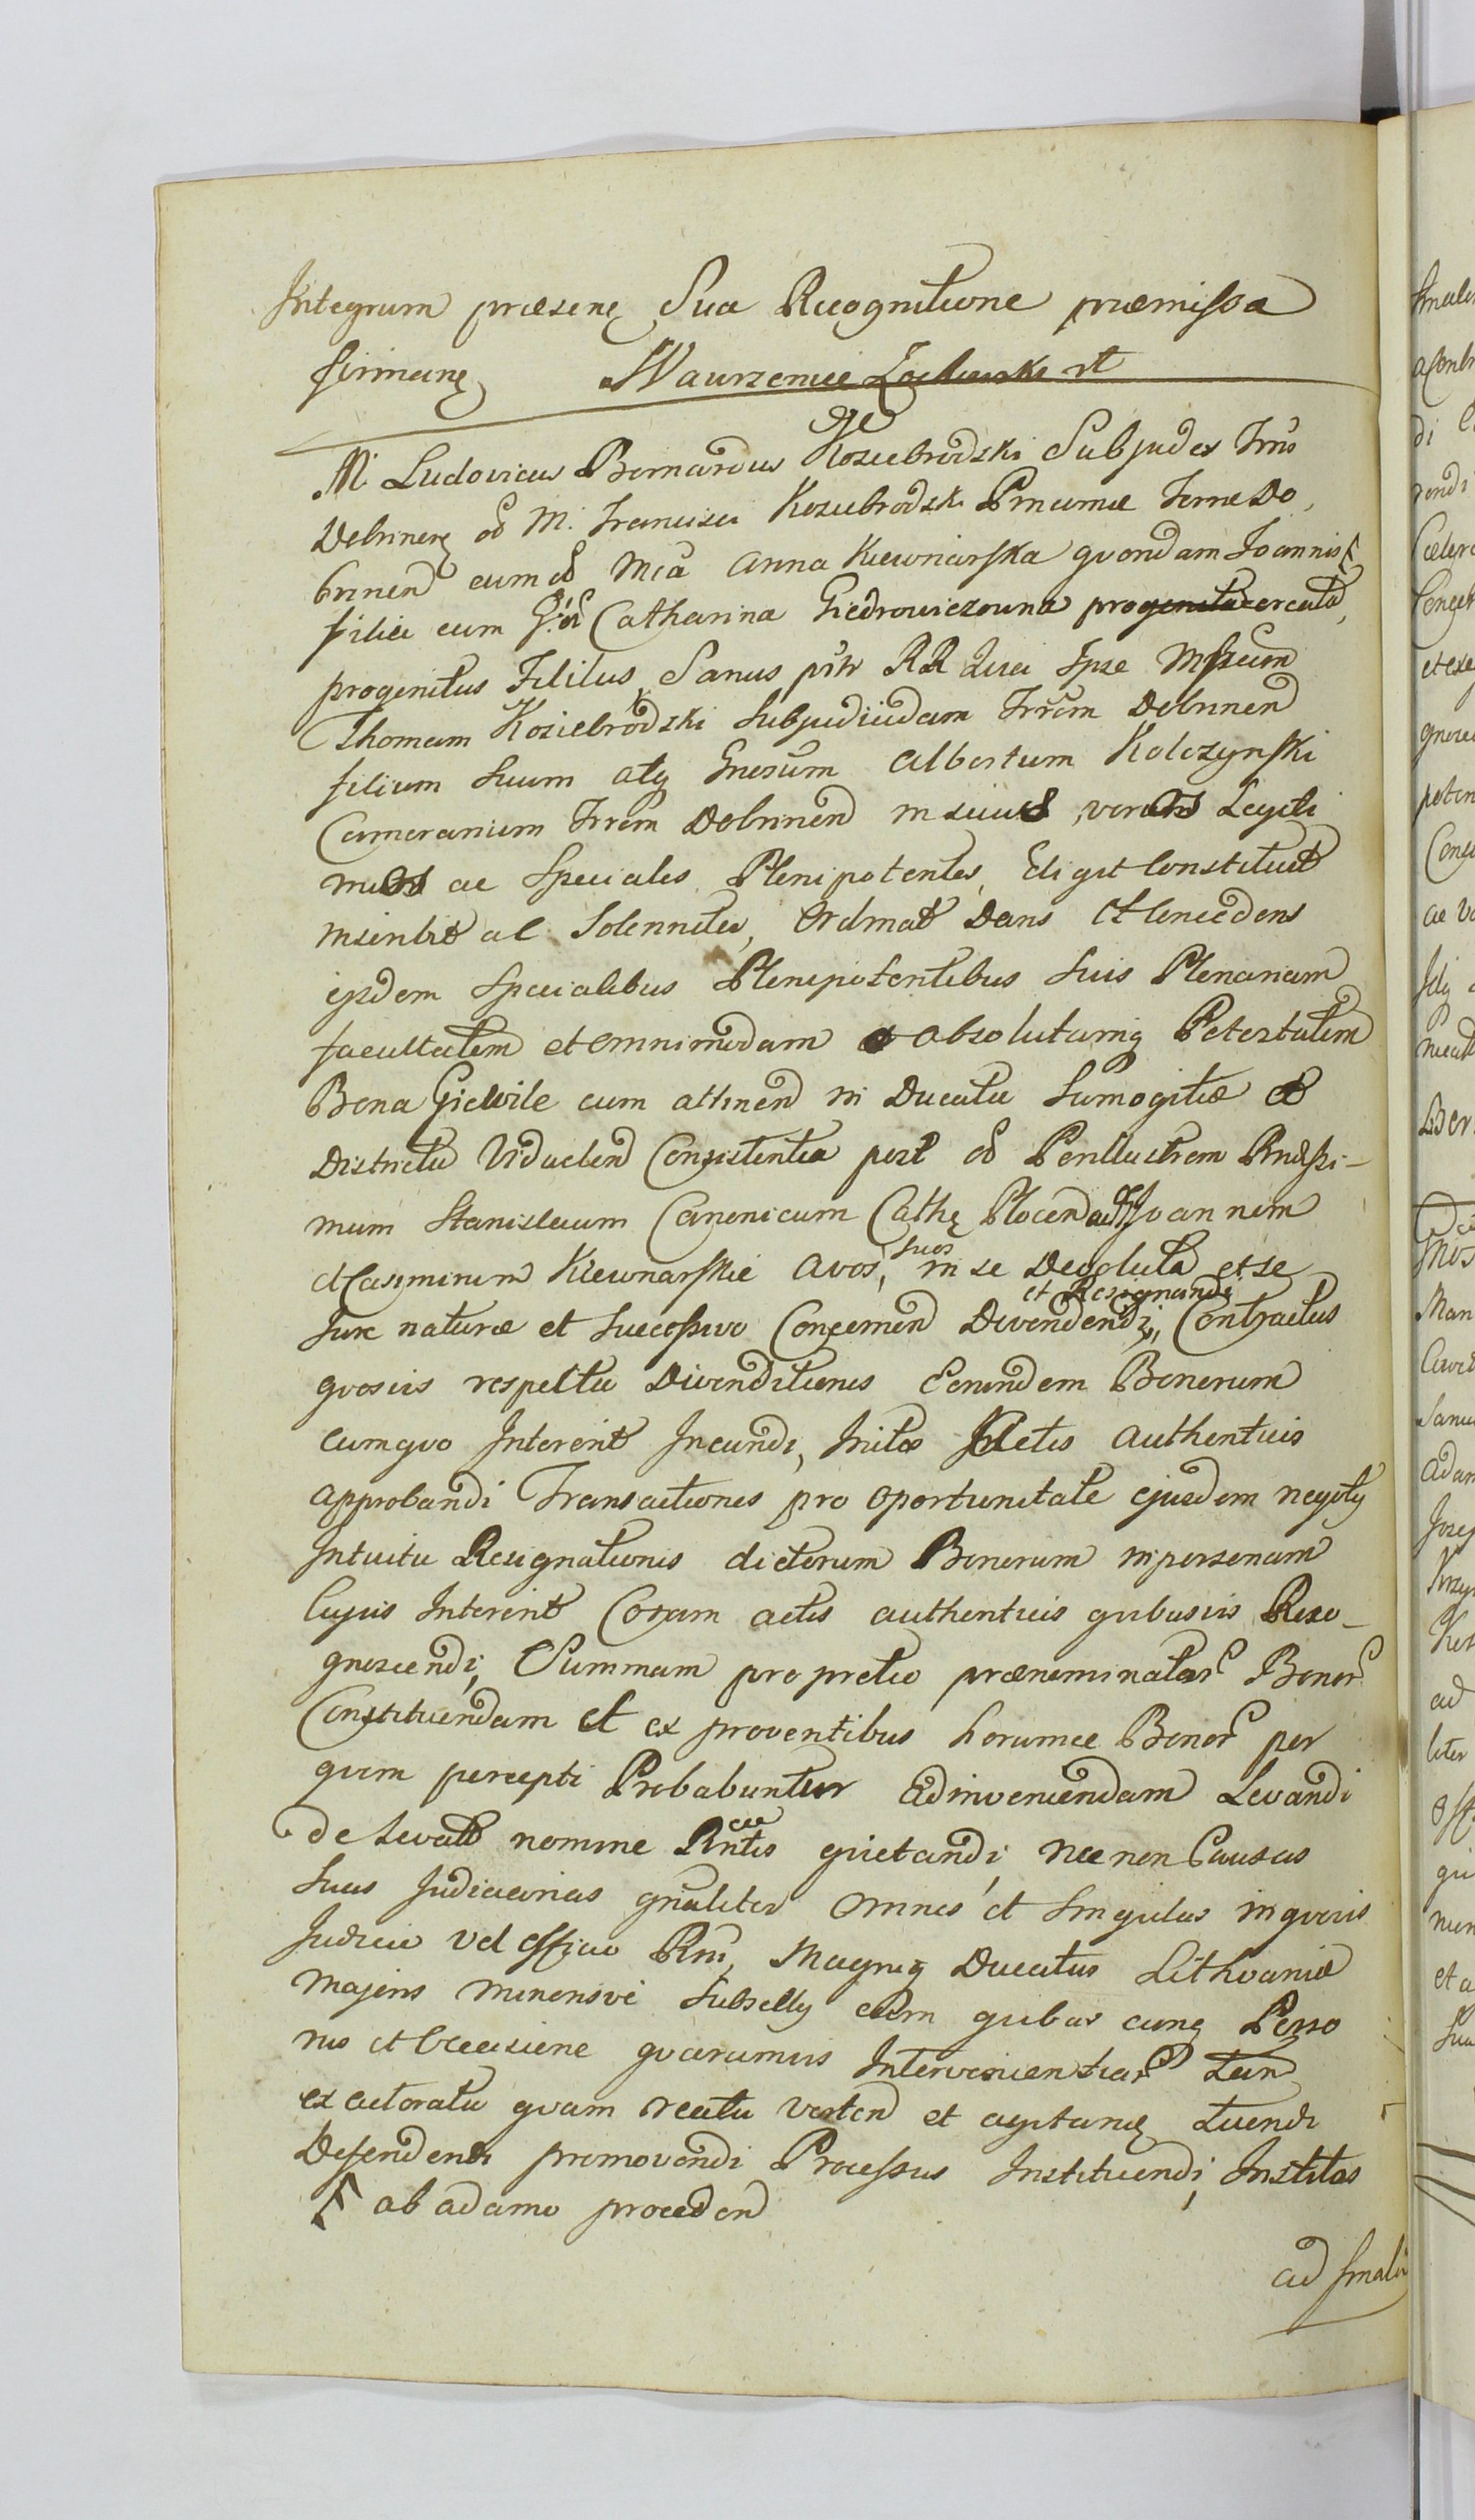 Integrum præsenꝫ Sua Recognitione præmissa
firmanꝫ Wawrzeniec
M. Ludovicus Bernardus Kosiebrodzki Subjudex Trrũs
Debrinenꝫ M. Francisci Kosiebrodzki Pincernæ Terræ Do,
brinen cum Mcã Anna Kiewnarska qvondam Joannis
filia cum Catharina Giedrowiczowna procreata,
progenitus Filius, Sanus pñtr RR Quia Ipse Mfficum
Thomam Kosiebrodzki Subjudicidam Trrem Dobrinen
filium Suum atq Gnrosum Albertum Kolczynski
Camerarium Trrem Dobrinen in suios, veros Legiti
mos ac Speciales Plenipotentes, Eligit Constituit
inscribit ac Solenniter, Ordinat Dans et Concedens
ijsdem Specialibus Plenipotentibus Suis Plenariam
facultatem et omnimodam absolutamq Potestatem
Bona Giewile cum attinen in Ducatu Samogitiæ
Districtu Viduclen Consistentia post Perillustrem Rndssi-
mum Stanislaum Canonicum Cathꝫ Plocen ac Joannem
et Casimirum Kiewnarskie Avos, suos in se Devoluta et se
et Resignandi
Jure naturæ et Successivo Concernen Divendendi, Contractus
qvosvis respectu Divenditionis Eorundem Bonorum
cumqvo Intererit Ineundi, Initos Actis Authenticis
Approbandi Transactiones pro oportunitate ejusdem negotij
Intuitu Resignationis dictorum Bonorum in personam
Cujus Intererit Coram actis authenticis qvibusvis Reco-
gnoscendi, Summam pro pretio prænominatar Bonor
Constituendam et ex proventibus horumce Bonor per
qvem percepti Probabuntur Adinveniendam Levandi
de Levatis nomine Rñtis qvietandi, nec non Causas
Suas Judiciarias gñaliter Omnes et Singulas in qvovis
Judicio vel officio Rni, Magniq Ducatus Lithvaniæ
Majoris Minorisve Subsellij cum qvibus cunq Perso
nis et Occasione qvarumvis Intervenientiar tam
ex actoratu qvam reatu verten et agitanꝫ tuendi
Defendendi promovendi Processus Instituendi, Institos
ab adamo proceden
ad finalẽ